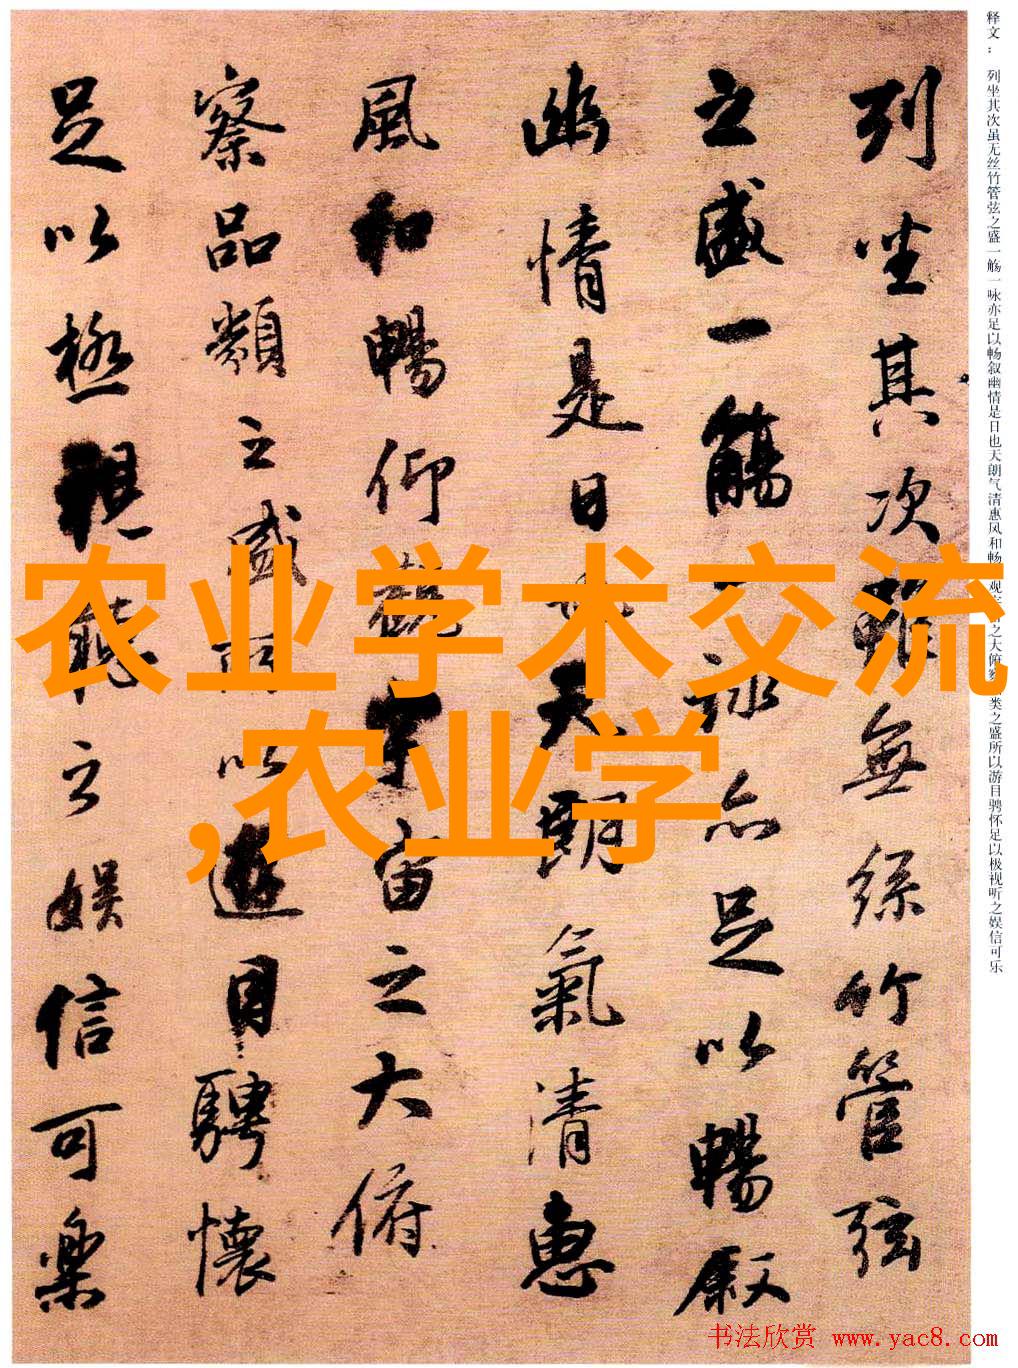 释文： 列坐其次虽无丝竹管弦之盛一觞一咏亦足以畅叙幽情是日也天朗气清惠风和畅观之大俯察类之盛所以游目骋怀足以极视听之娱信可乐
列坐其次雖無絲竹管弦
之盛一觴一詠亦足以暢叙
幽情是日也天朗氣清惠
風和暢仰觀宇宙之大俯
察品類之盛所以遊目騁懷
足以極視聽之娛信可樂
农业学术交流
,农业学
书法欣赏 www.yac8.com